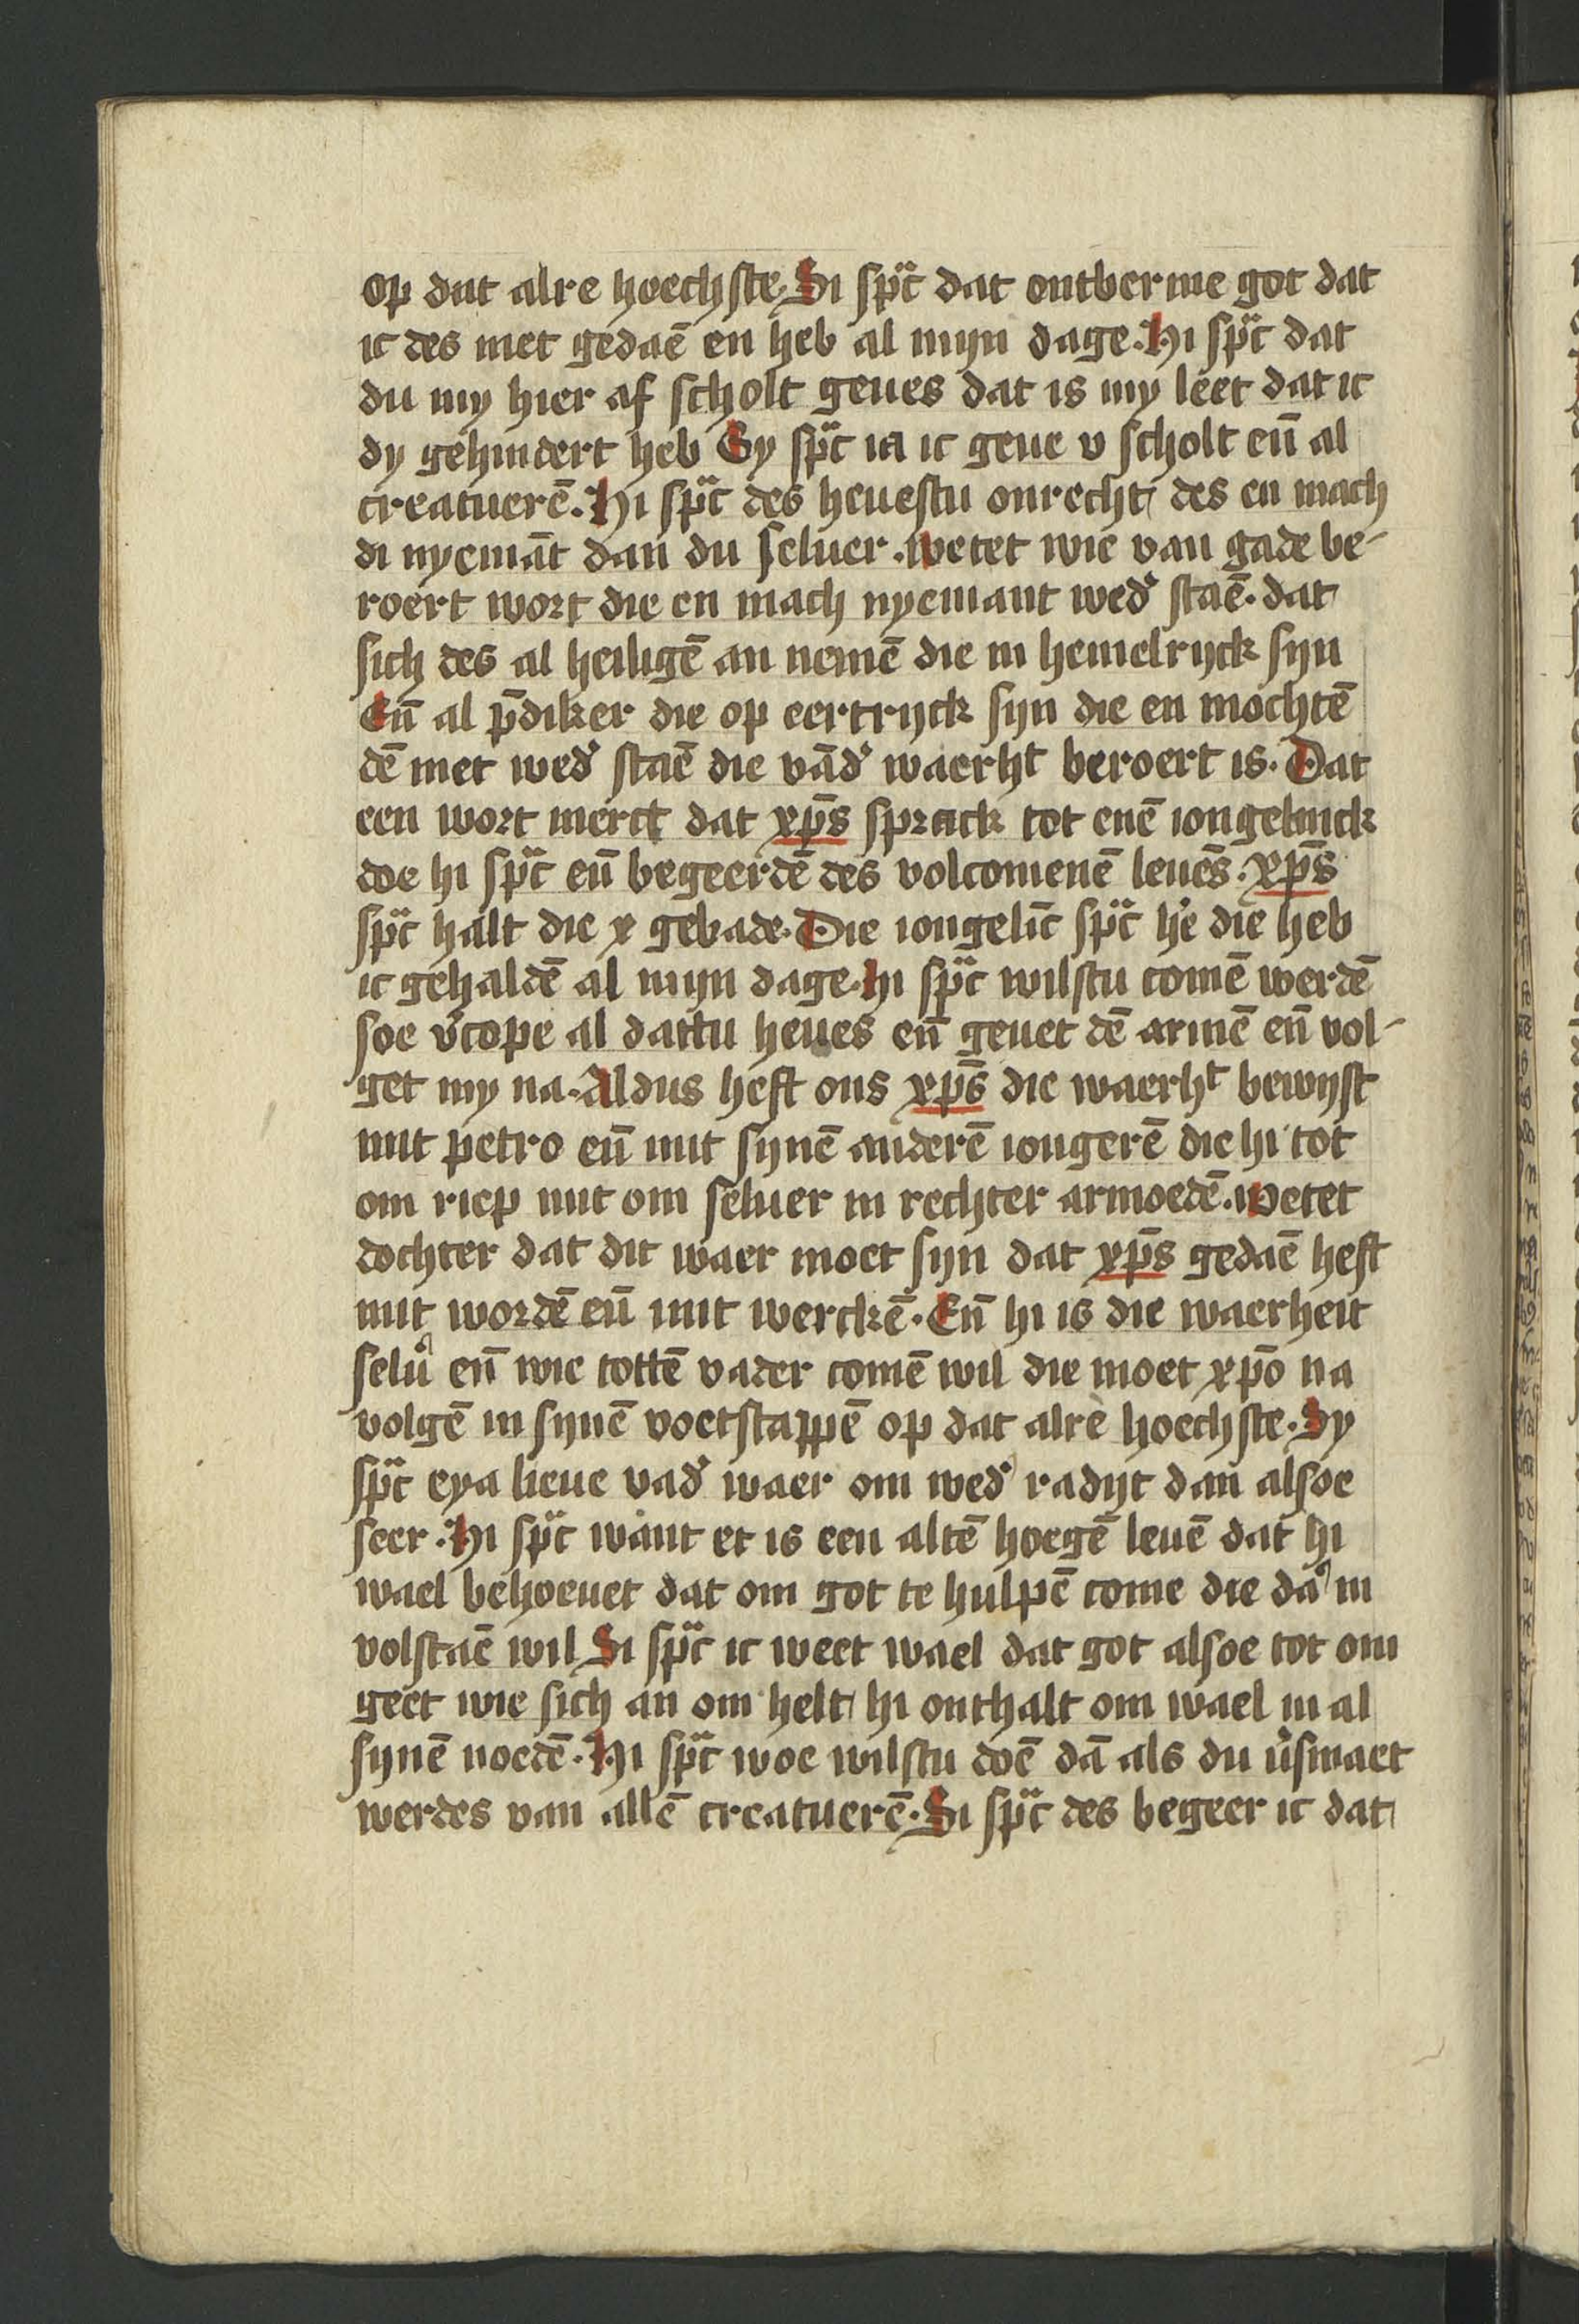 op dat alre hoechste. Si sp̈c dat ontberme got dat
ic des niet gedaē en heb al mijn dage. Hi sp̈c dat
du my hier af scholt geues dat is my leet dat ic
dy gehindert heb Sy sp̈c ia ic geue v scholt eñ al
creatuerē. Hi sp̈c des heuestu onrecht des en mach
di nyemāt dan du seluer. wetet wie van gade be-
roert wort die en mach nyemant wed' staē. dat
sich des al heiligē an nemē die in hemelrijck sijn
Eñ al p̄diker die op eertrijck sijn die en mochtē
dē niet wed' staē die vād' waerht beroert is. Dat
een wort merct dat xp̄s sprack tot enē iongelinck
doe hi sp̈c eñ begeerdē des volcomenē leuēs. Xp̄s
sp̈c halt die x gebade. Die iongelīc sp̈c h'e die heb
ic gehaldē al mijn dage. Hi sp̈c wilstu comē werdē
soe v'cope al dattu heues eñ geuet dē armē eñ vol-
get my na. Aldus heft ons xp̄s die waerht bewijst
mit petro eñ mit sijnē anderē iongerē die hi tot
om riep mit om seluer in rechter armoedē. wetet
dochter dat dit waer moet sijn dat xp̄s gedaē heft
mit wordē eñ mit werckē. Eñ hi is die waerheit
selu' eñ wie tottē vader comē wil die moet xp̄o na
volgē in sijnē voetstappē op dat alre hoechste. Sy
sp̈c eya lieue vad' waer om wed' radijt dan alsoe
seer. Hi sp̈c want et is een altē hoegē leuē dat hi
wael behoeuet dat om got te hulpē come die da' in
volstaē wil Si sp̈c ic weet wael dat got alsoe tot om
geet wie sich an om helt hi onthalt om wael in al
sijnē noedē. Hi sp̈c woe wilstu doē dā als du v'smaet
werdes van allē creatuerē. Si sp̈c des begeer ic dat